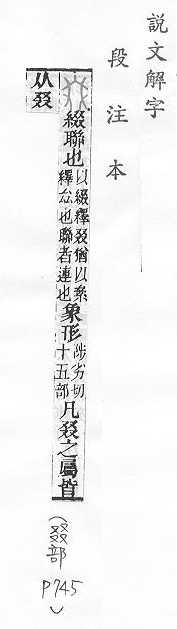 説文解字
段注本
叕綴聯也以綴釋叕猶以絫釋厽也聯者連也象形陟劣切十五部凡叕之屬皆
从叕
(叕部 P745)